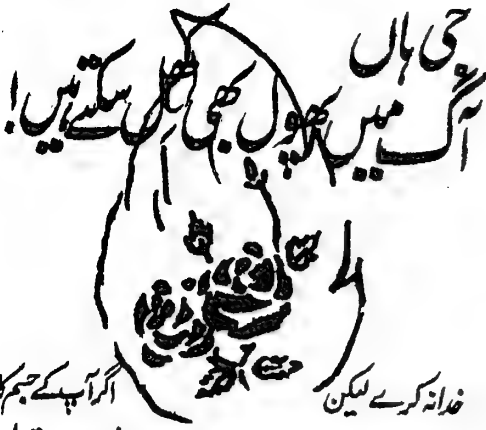 جی ہاں
آگ میں پھول بھی کھل سکتے ہیں!
خدانہ کرے لیکن
اگر آپ کے جسم کا